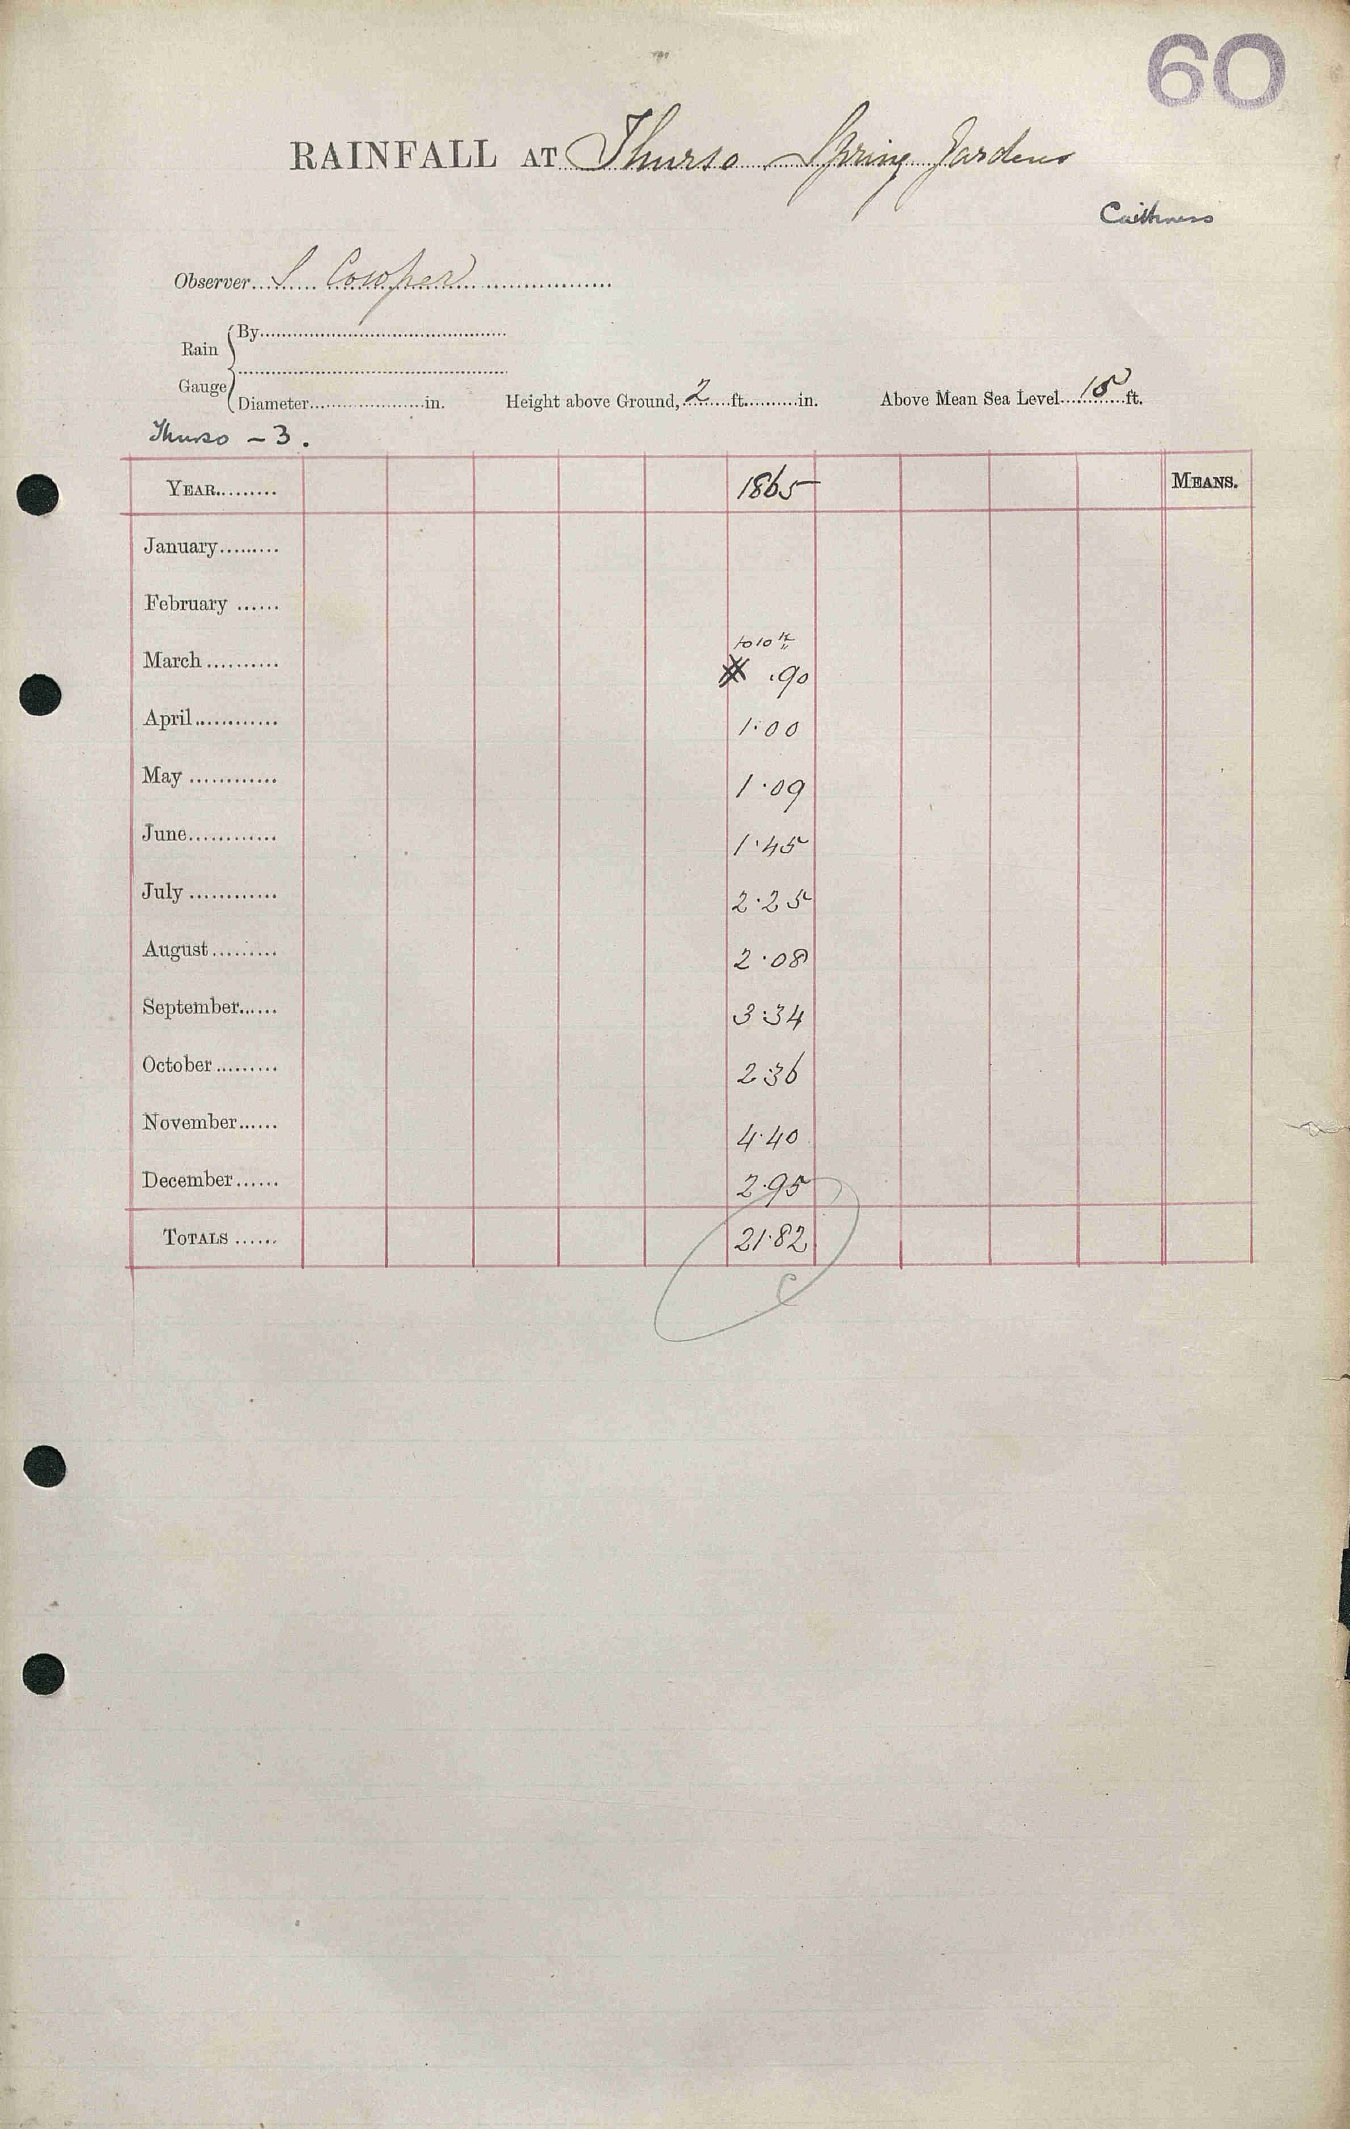 60
RAINFALL AT Thurso Spring Gardens
Caithness
Observer......... S Cowper ..................
Rain Gauge { By..............................................
Diameter......................in. Height above Ground, 2 ft..........in. Above Mean Sea Level 15 ft.
Thurso - 3.
YEAR......... 1865 MEANS.
January.........
February ......
to 10th
March .......... # .90
April............ 1.00
May ............ 1.09
June............ 1.45
July ............ 2.25
August......... 2.08
September...... 3.34
October ......... 2.36
November...... 4.40
December...... 2.95
TOTALS ...... 21.82